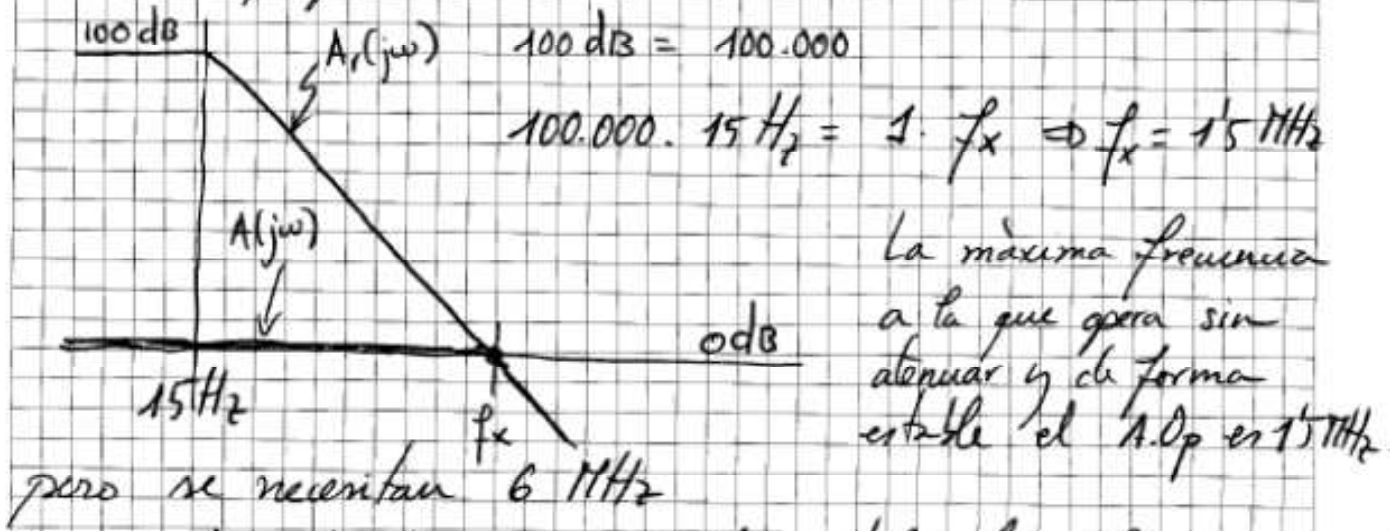 100 dB
Aᵣ(jω)
100 dB = 100.000
100.000. 15 Hz = 1. fx ⇒ fx = 1'5 MHz
A(jω)
La màxima frecuencia
a la que opera sin
atenuar y de forma
estable el A.Op es 1'5 MHz
0dB
15 Hz
fx
pero se necesitan 6 MHz